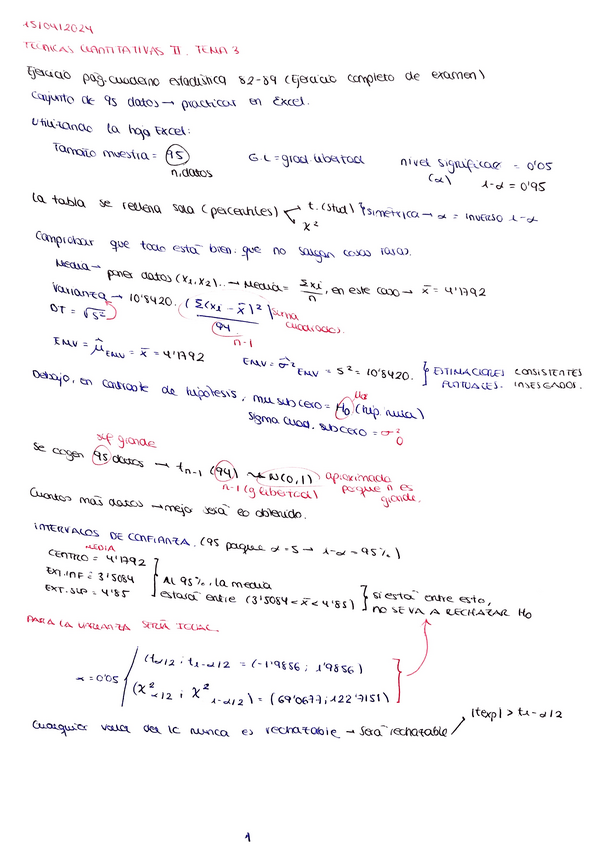 15/04/2024
TÉCNICAS CUANTITATIVAS II. TEMA 3
Ejercicio pág. cuaderno estadística 82-89 (Ejercicio completo de examen)
Conjunto de 95 datos → practicar en Excel.
Utilizando la hoja Excel:
Tamaño muestra = 95   G.L = grad. libertad   nivel significac = 0'05
n. datos   (α)   1-α = 0'95
La tabla se rellena sola (percentiles) t. (stud) } simétrica → α = inverso 1-α
χ²
Comprobar que todo está bien. que no salgan cosas raras.
Media → poner datos (x1, x2)... → Media = Σxi/n, en este caso → x̄ = 4'1792
Varianza → 10'8420. (Σ(xi - x̄)²) suma cuadrados.
DT = √S²   94
n-1
EMV = μ̂ EMV = x̄ = 4'1792   EMV = σ̂² EMV = S² = 10'8420. } ESTIMACIONES CONSISTENTES
PUNTUALES. INSESGADOS.
Debajo, en contraste de hipótesis, mu sub cero = H0 (hip. nula)
sigma cuad. sub cero = σ²0
sup grande
Se cogen 95 datos → t n-1 (94) ~ N(0,1) aproximado
n-1 (g libertad) porque n es grande.
Cuantos más datos → mejor será lo obtenido.
INTERVALOS DE CONFIANZA. (95 porque α = 5 → 1-α = 95%)
MEDIA
CENTRO = 4'1792
EXT. INF = 3'5084 } Al 95%, la media } si está entre esto,
EXT. SUP = 4'85 estará entre (3'5084 < x̄ < 4'85) NO SE VA A RECHAZAR H0
PARA LA VARIANZA SERÍA IGUAL.
α = 0'05 { (tα/2 ; t1-α/2 = (-1'9856 ; 1'9856)
(χ²α/2 ; χ²1-α/2) = (69'0677 ; 122'7151)
Cualquier valor del IC nunca es rechazable → Será rechazable |texp| > t1-α/2
1